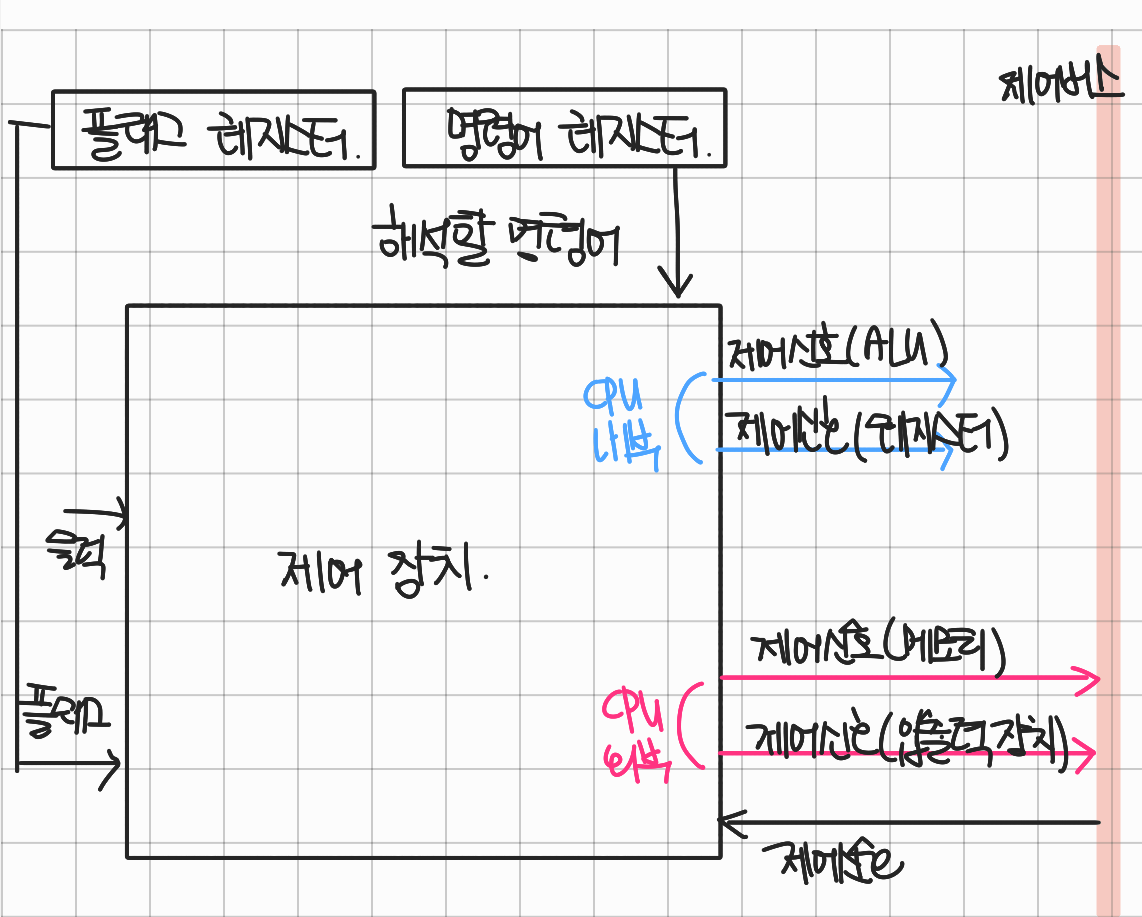 제어버스
플래그 레지스터.
명령어 레지스터.
해석할 명령어
제어신호(ALU)
CPU
내부
제어신호(레지스터)
클럭
제어 장치.
제어신호(메모리)
플래그
CPU
외부
제어신호(입출력장치)
제어신호